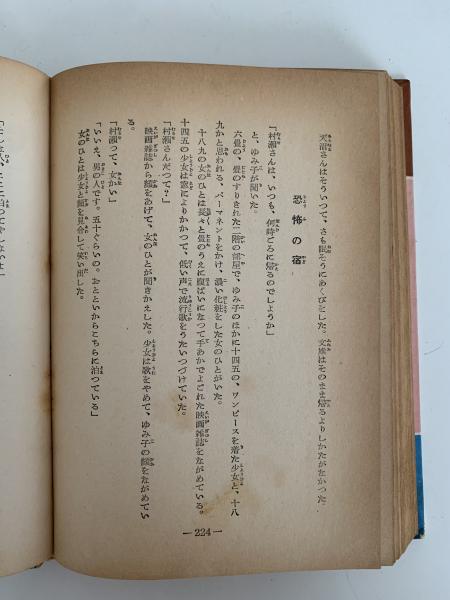 天沼さんはそういつて、さも眠そうにあくびをした。文雄はそのまま帰るよりしかたがなかつた。
恐怖の宿
「村瀬さんは、いつも、何時ごろに帰るのでしようか」
と、ゆみ子が聞いた。
六畳の、畳のすりきれた二階の部屋で、ゆみ子のほかに十四五の、ワンピースを着た少女と、十八
九かと思われる、パーマネントをかけ、濃い化粧をした女のひとがいた。
十八九の女のひとは長々と畳のうえに腹ばいになつて手あかでよごれた映画雑誌をながめている。
十四五の少女は窓によりかかつて、低い声で流行歌をうたいつづけていた。
「村瀬さんだつて?」
映画雑誌から顔をあげて、女のひとが聞きかえした。少女は歌をやめて、ゆみ子の顔をながめてい
る。
「村瀬つて、女かい」
「いいえ、男の人です。五十ぐらいの。おとといからこちらに泊つている」
女のひとは少女と顔を見合して笑い出した。
—224—